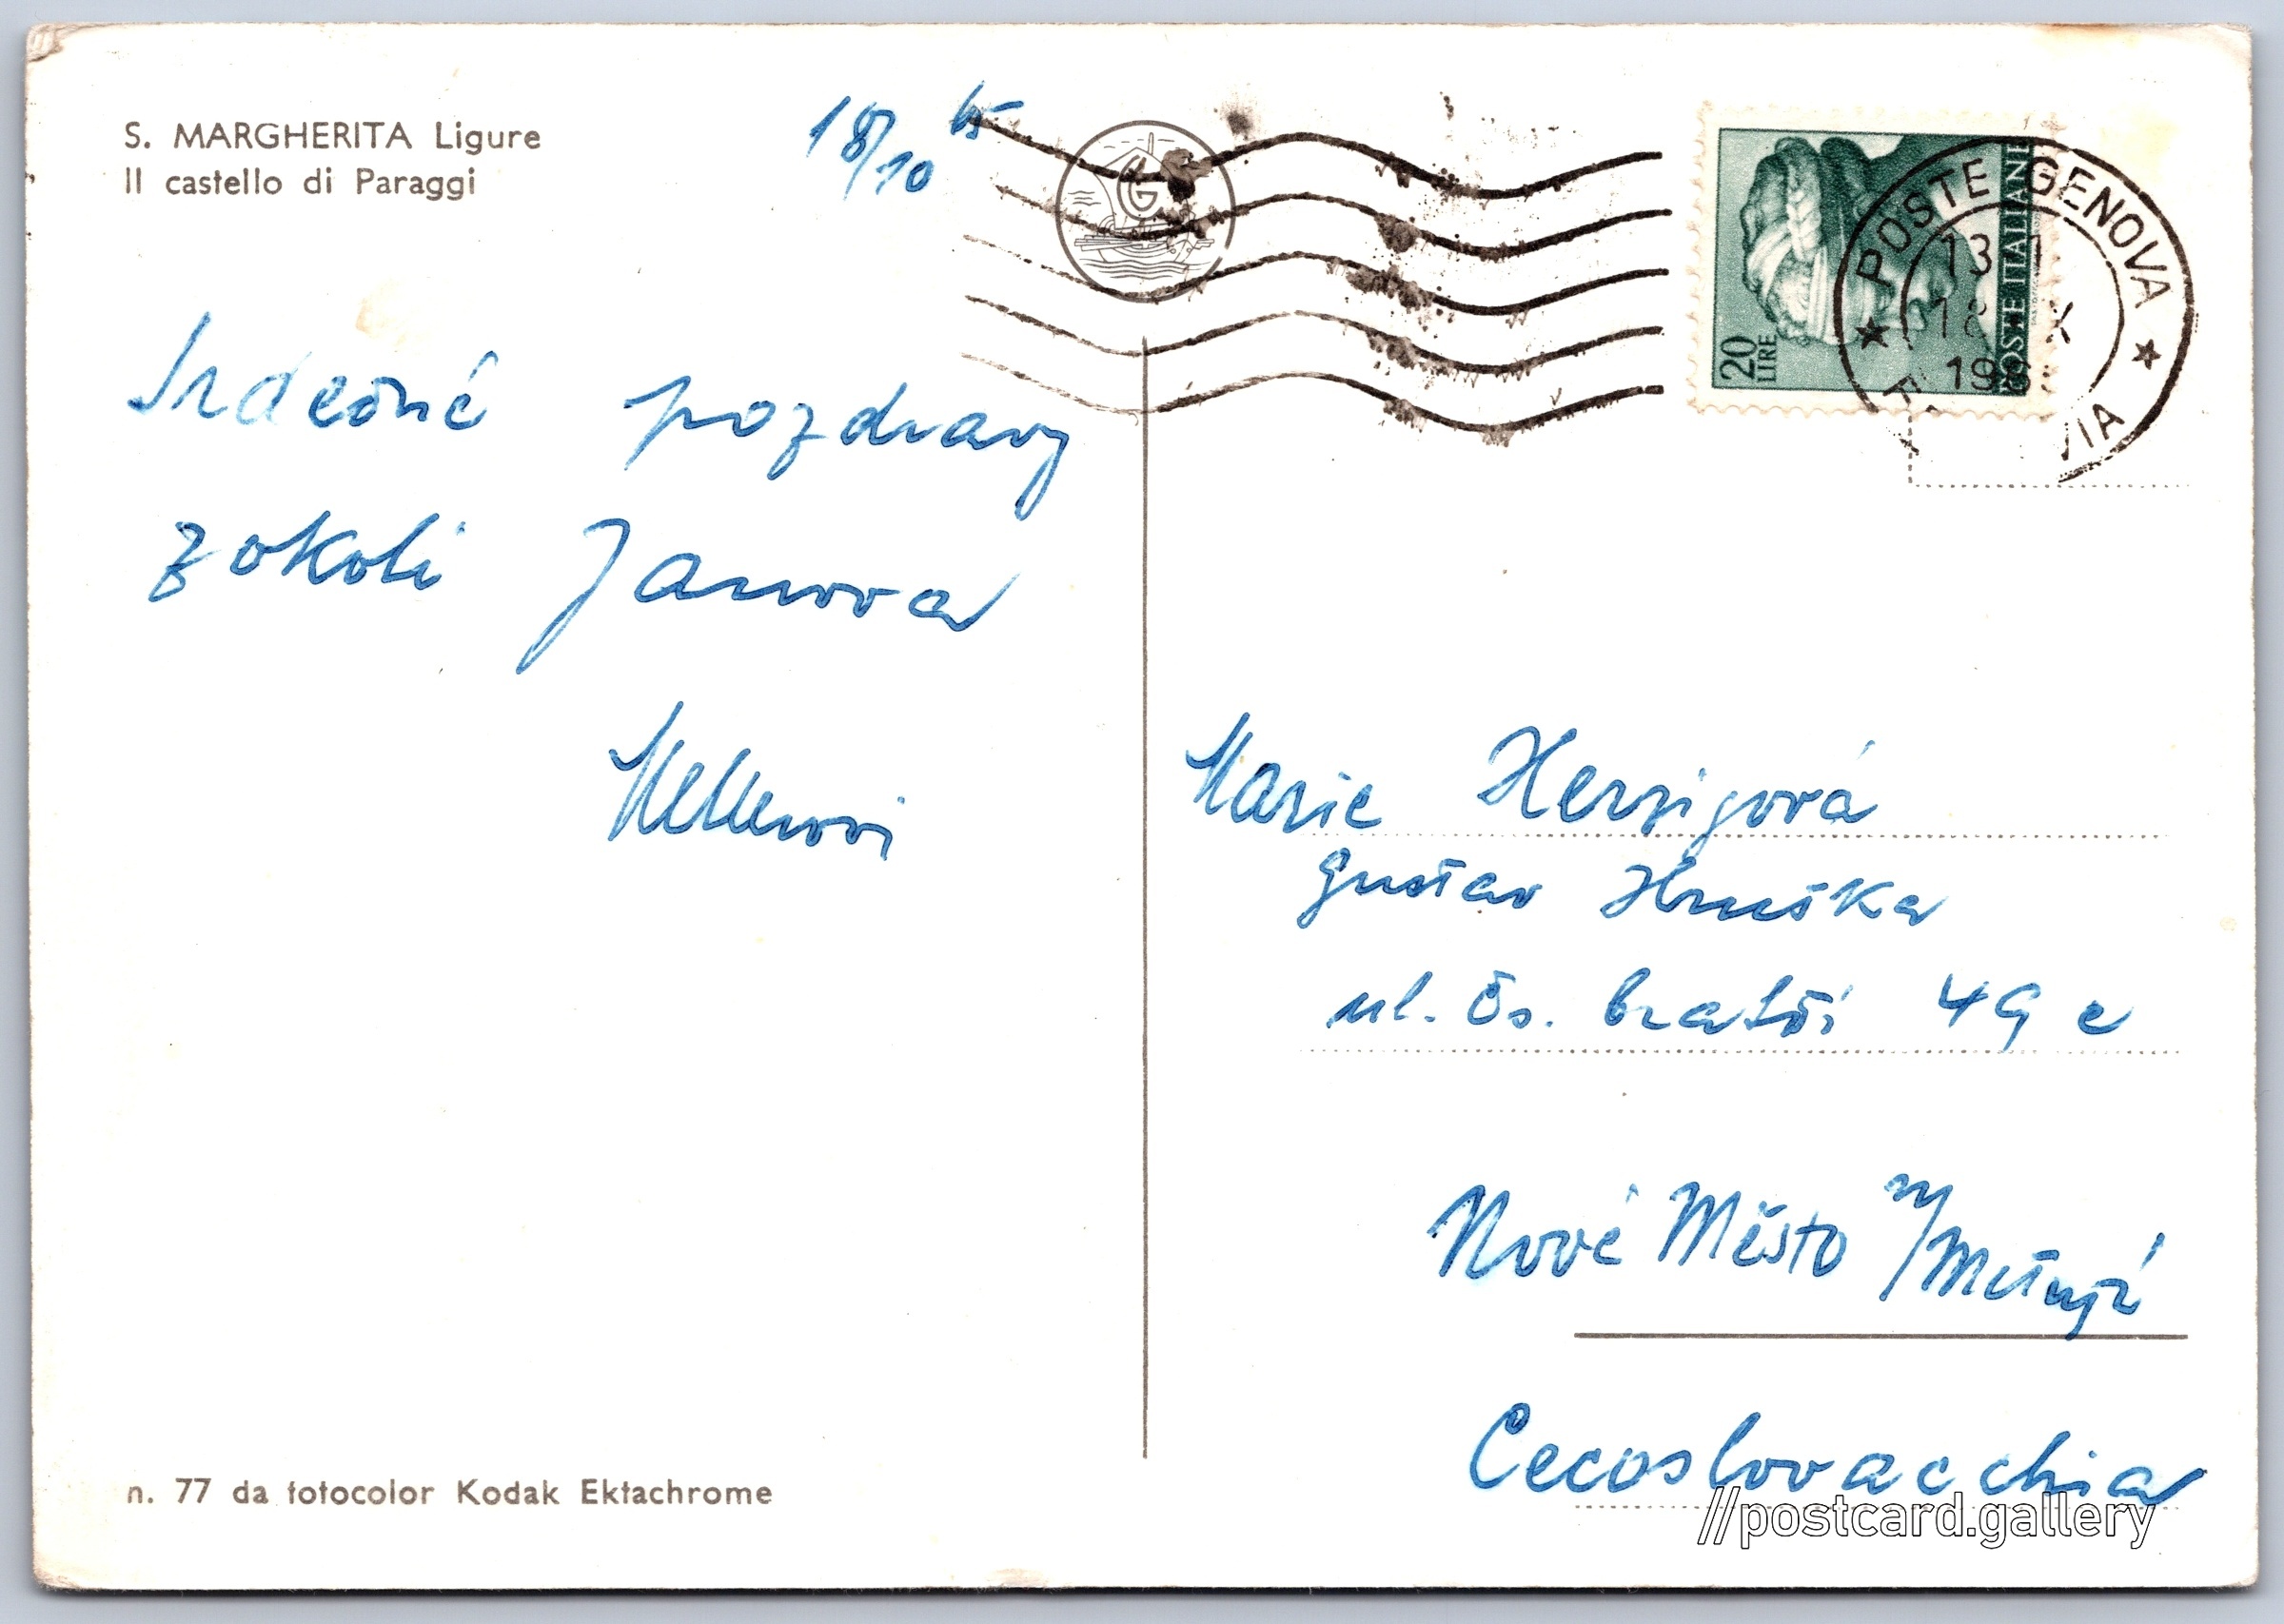 S. MARGHERITA Ligure
Il castello di Paraggi
18/10 65
Srdečné pozdravy
z okolí Janova
Kellerovi
G
20 LIRE
POSTE ITALIANE
POSTE GENOVA
13
18 X
196
Marie Herzigová
Gustav Hruška
ul. Čs. bratří 49 e
Nové Město n/Metují
Cecoslovacchia
n. 77 da fotocolor Kodak Ektachrome
//postcard.gallery